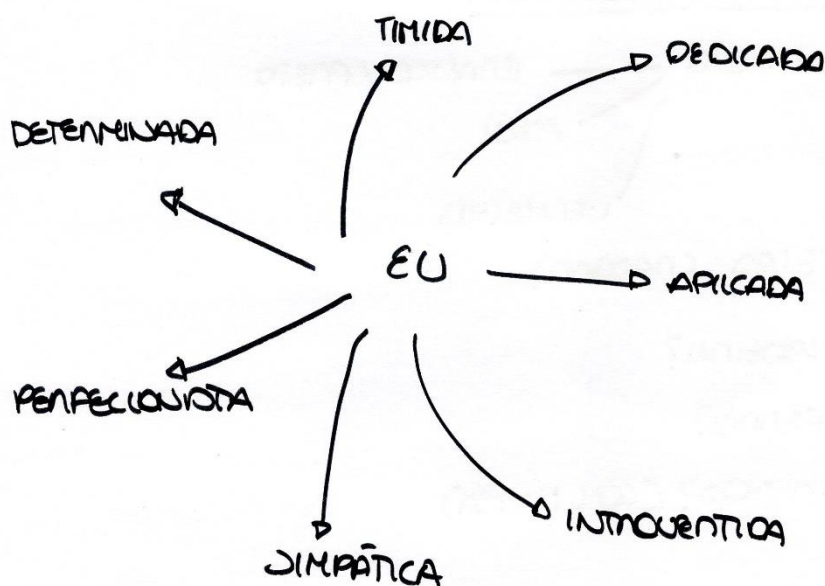 TIMIDA
DEDICADA
DETERMINADA
EU
APLICADA
PERFECCIONISTA
INTROVERTIDA
SIMPÁTICA